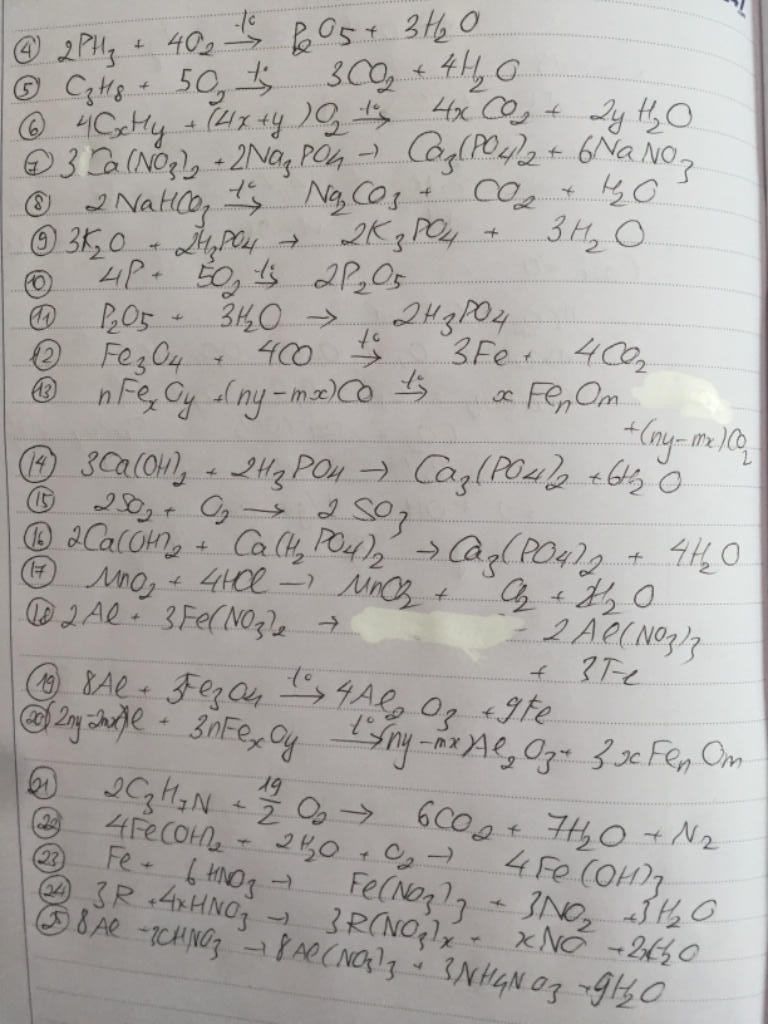 ④ 2PH₃ + 4O₂ —t°→ P₂O₅ + 3H₂O
⑤ C₃H₈ + 5O₂ —t°→ 3CO₂ + 4H₂O
⑥ 4CxHy + (4x+y)O₂ —t°→ 4xCO₂ + 2yH₂O
⑦ 3Ca(NO₃)₂ + 2Na₃PO₄ → Ca₃(PO₄)₂ + 6NaNO₃
⑧ 2NaHCO₃ —t°→ Na₂CO₃ + CO₂ + H₂O
⑨ 3K₂O + 2H₃PO₄ → 2K₃PO₄ + 3H₂O
⑩ 4P + 5O₂ —t°→ 2P₂O₅
⑪ P₂O₅ + 3H₂O → 2H₃PO₄
⑫ Fe₃O₄ + 4CO —t°→ 3Fe + 4CO₂
⑬ nFexOy + (ny-mx)CO —t°→ xFenOm
+(ny-mx)CO₂
⑭ 3Ca(OH)₂ + 2H₃PO₄ → Ca₃(PO₄)₂ + 6H₂O
⑮ 2SO₂ + O₂ → 2SO₃
⑯ 2Ca(OH)₂ + Ca(H₂PO₄)₂ → Ca₃(PO₄)₂ + 4H₂O
⑰ MnO₂ + 4HCl → MnCl₂ + Cl₂ + 2H₂O
⑱ 2Al + 3Fe(NO₃)₂ → 2Al(NO₃)₃
+ 3Fe
⑲ 8Al + 3Fe₃O₄ —t°→ 4Al₂O₃ + 9Fe
⑳ (2ny-2mx)Al + 3nFexOy —t°→ (ny-mx)Al₂O₃ + 3xFenOm
㉑ 2C₃H₇N + 19/2 O₂ → 6CO₂ + 7H₂O + N₂
㉒ 4Fe(OH)₂ + 2H₂O + O₂ → 4Fe(OH)₃
㉓ Fe + 6HNO₃ → Fe(NO₃)₃ + 3NO₂ + 3H₂O
㉔ 3R + 4xHNO₃ → 3R(NO₃)x + xNO + 2xH₂O
㉕ 8Al + 30HNO₃ → 8Al(NO₃)₃ + 3NH₄NO₃ + 9H₂O